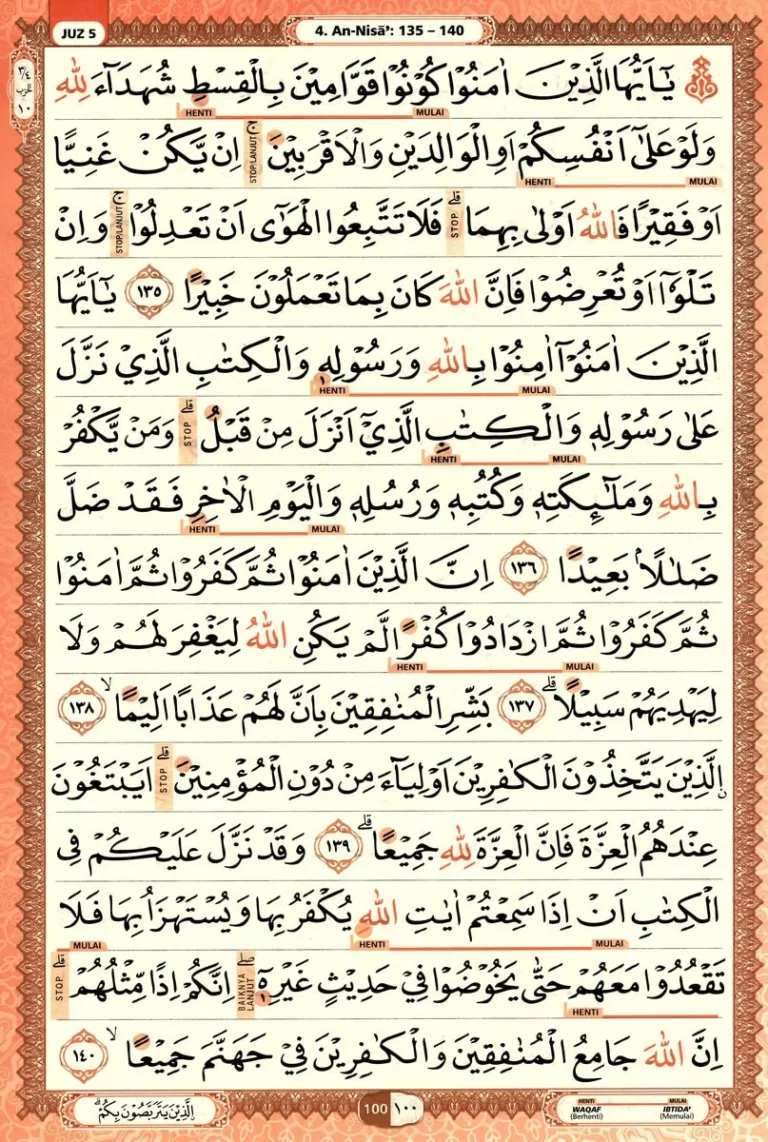 JUZ 5
4. An-Nisā': 135 – 140
٣/٤
الحزب
١٠
يٰٓاَيُّهَا الَّذِيْنَ اٰمَنُوْا كُوْنُوْا قَوَّامِيْنَ بِالْقِسْطِ شُهَدَاۤءَ لِلّٰهِ
HENTI MULAI
وَلَوْ عَلٰٓى اَنْفُسِكُمْ اَوِ الْوَالِدَيْنِ وَالْاَقْرَبِيْنَ ۚ اِنْ يَّكُنْ غَنِيًّا
STOP/LANJUT
HENTI MULAI
اَوْ فَقِيْرًا فَاللّٰهُ اَوْلٰى بِهِمَا ۗ فَلَا تَتَّبِعُوا الْهَوٰٓى اَنْ تَعْدِلُوْا ۚ وَاِنْ
STOP STOP/LANJUT
تَلْوٗٓا اَوْ تُعْرِضُوْا فَاِنَّ اللّٰهَ كَانَ بِمَا تَعْمَلُوْنَ خَبِيْرًا ١٣٥ يٰٓاَيُّهَا
الَّذِيْنَ اٰمَنُوْٓا اٰمِنُوْا بِاللّٰهِ وَرَسُوْلِهٖ وَالْكِتٰبِ الَّذِيْ نَزَّلَ
HENTI MULAI
عَلٰى رَسُوْلِهٖ وَالْكِتٰبِ الَّذِيْٓ اَنْزَلَ مِنْ قَبْلُ ۗ وَمَنْ يَّكْفُرْ
STOP
HENTI MULAI
بِاللّٰهِ وَمَلٰۤىِٕكَتِهٖ وَكُتُبِهٖ وَرُسُلِهٖ وَالْيَوْمِ الْاٰخِرِ فَقَدْ ضَلَّ
HENTI MULAI
ضَلٰلًاۢ بَعِيْدًا ١٣٦ اِنَّ الَّذِيْنَ اٰمَنُوْا ثُمَّ كَفَرُوْا ثُمَّ اٰمَنُوْا
ثُمَّ كَفَرُوْا ثُمَّ ازْدَادُوْا كُفْرًا لَّمْ يَكُنِ اللّٰهُ لِيَغْفِرَ لَهُمْ وَلَا
HENTI MULAI
لِيَهْدِيَهُمْ سَبِيْلًاۗ ١٣٧ بَشِّرِ الْمُنٰفِقِيْنَ بِاَنَّ لَهُمْ عَذَابًا اَلِيْمًاۙ ١٣٨
ۨالَّذِيْنَ يَتَّخِذُوْنَ الْكٰفِرِيْنَ اَوْلِيَاۤءَ مِنْ دُوْنِ الْمُؤْمِنِيْنَ ۗ اَيَبْتَغُوْنَ
STOP
عِنْدَهُمُ الْعِزَّةَ فَاِنَّ الْعِزَّةَ لِلّٰهِ جَمِيْعًاۗ ١٣٩ وَقَدْ نَزَّلَ عَلَيْكُمْ فِى
الْكِتٰبِ اَنْ اِذَا سَمِعْتُمْ اٰيٰتِ اللّٰهِ يُكْفَرُ بِهَا وَيُسْتَهْزَاُ بِهَا فَلَا
MULAI HENTI MULAI
تَقْعُدُوْا مَعَهُمْ حَتّٰى يَخُوْضُوْا فِيْ حَدِيْثٍ غَيْرِهٖٓ ۖ اِنَّكُمْ اِذًا مِّثْلُهُمْ ۗ
STOP BAIKNYA LANJUT
HENTI
اِنَّ اللّٰهَ جَامِعُ الْمُنٰفِقِيْنَ وَالْكٰفِرِيْنَ فِيْ جَهَنَّمَ جَمِيْعًاۙ ١٤٠
ۨالَّذِيْنَ يَتَرَبَّصُوْنَ بِكُمْۗ
100 ١٠٠
HENTI MULAI
WAQAF IBTIDA'
(Berhenti) (Memulai)